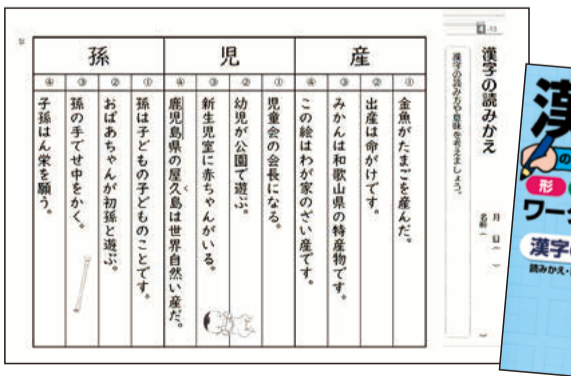 4-13
漢字の読みかえ
漢字の読み方や意味を考えましょう。
月 日
名前
産
①金魚がたまごを産んだ。
②出産は命がけです。
③みかんは和歌山県の特産物です。
④この絵はわが家のざい産です。
児
①児童会の会長になる。
②幼児が公園で遊ぶ。
③新生児室に赤ちゃんがいる。
④鹿児島県の屋久島は世界自然い産だ。
く
孫
①孫は子どもの子どものことです。
②おばあちゃんが初孫と遊ぶ。
③孫の手でせ中をかく。
④子孫はん栄を願う。
漢
の
形
ワー
漢字の
読みかえ・